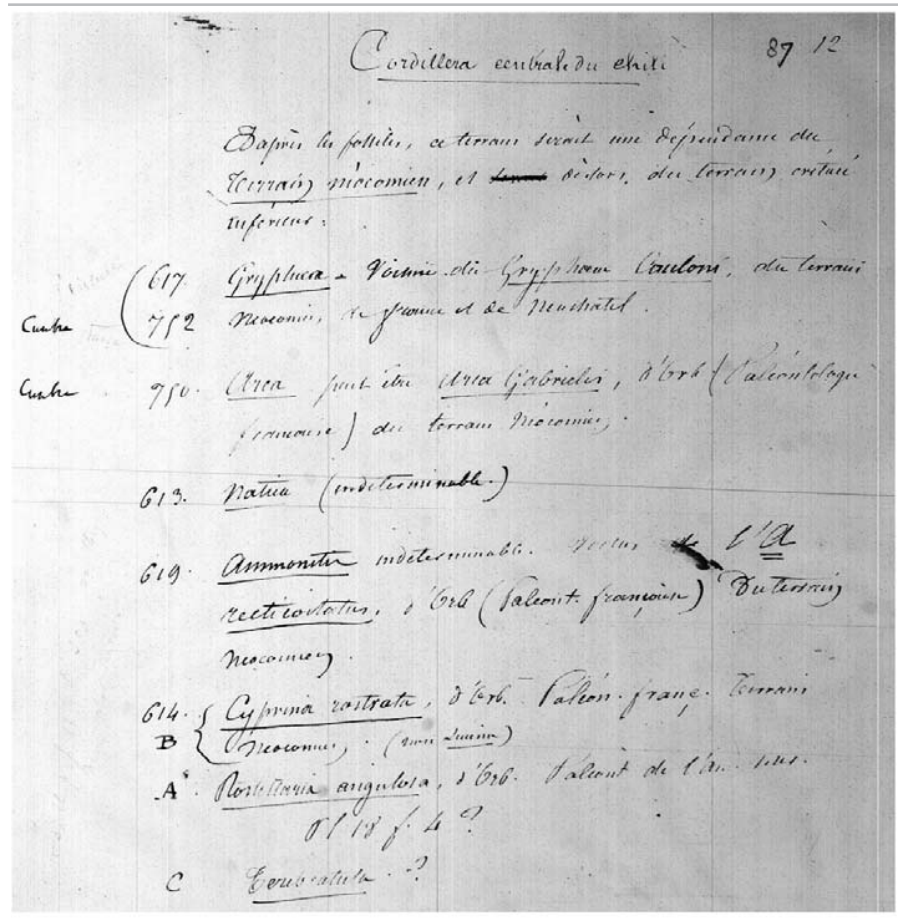 Cordillera centrale du Chili 87 12
D'après les fossiles, ce terrain serait une dépendance du
Terrain néocomien, et dèslors, du terrain crétacé
inférieur.
617. Gryphaea - Voisine du Gryphaea Couloni, du terrain
Cumbre 752 néocomien, de france et de Neuchatel.
Cumbre 750. Arca peut être Arca Gabrielis, d'Orb (Paléontologie
française) du terrain néocomien.
613. Natica (indéterminable.)
619. Ammonites indéterminable. Voisine de l'A
recticostatus, d'Orb (Paléont. française) Du terrain
néocomien.
614. Cyprina rostrata, d'Orb. Paléon. franç. Terrain
B néocomien. (non)
A Rostellaria angulosa, d'Orb. Paléont de l'Am.
Pl 18 f. 4 ?
C Terebratula. ?